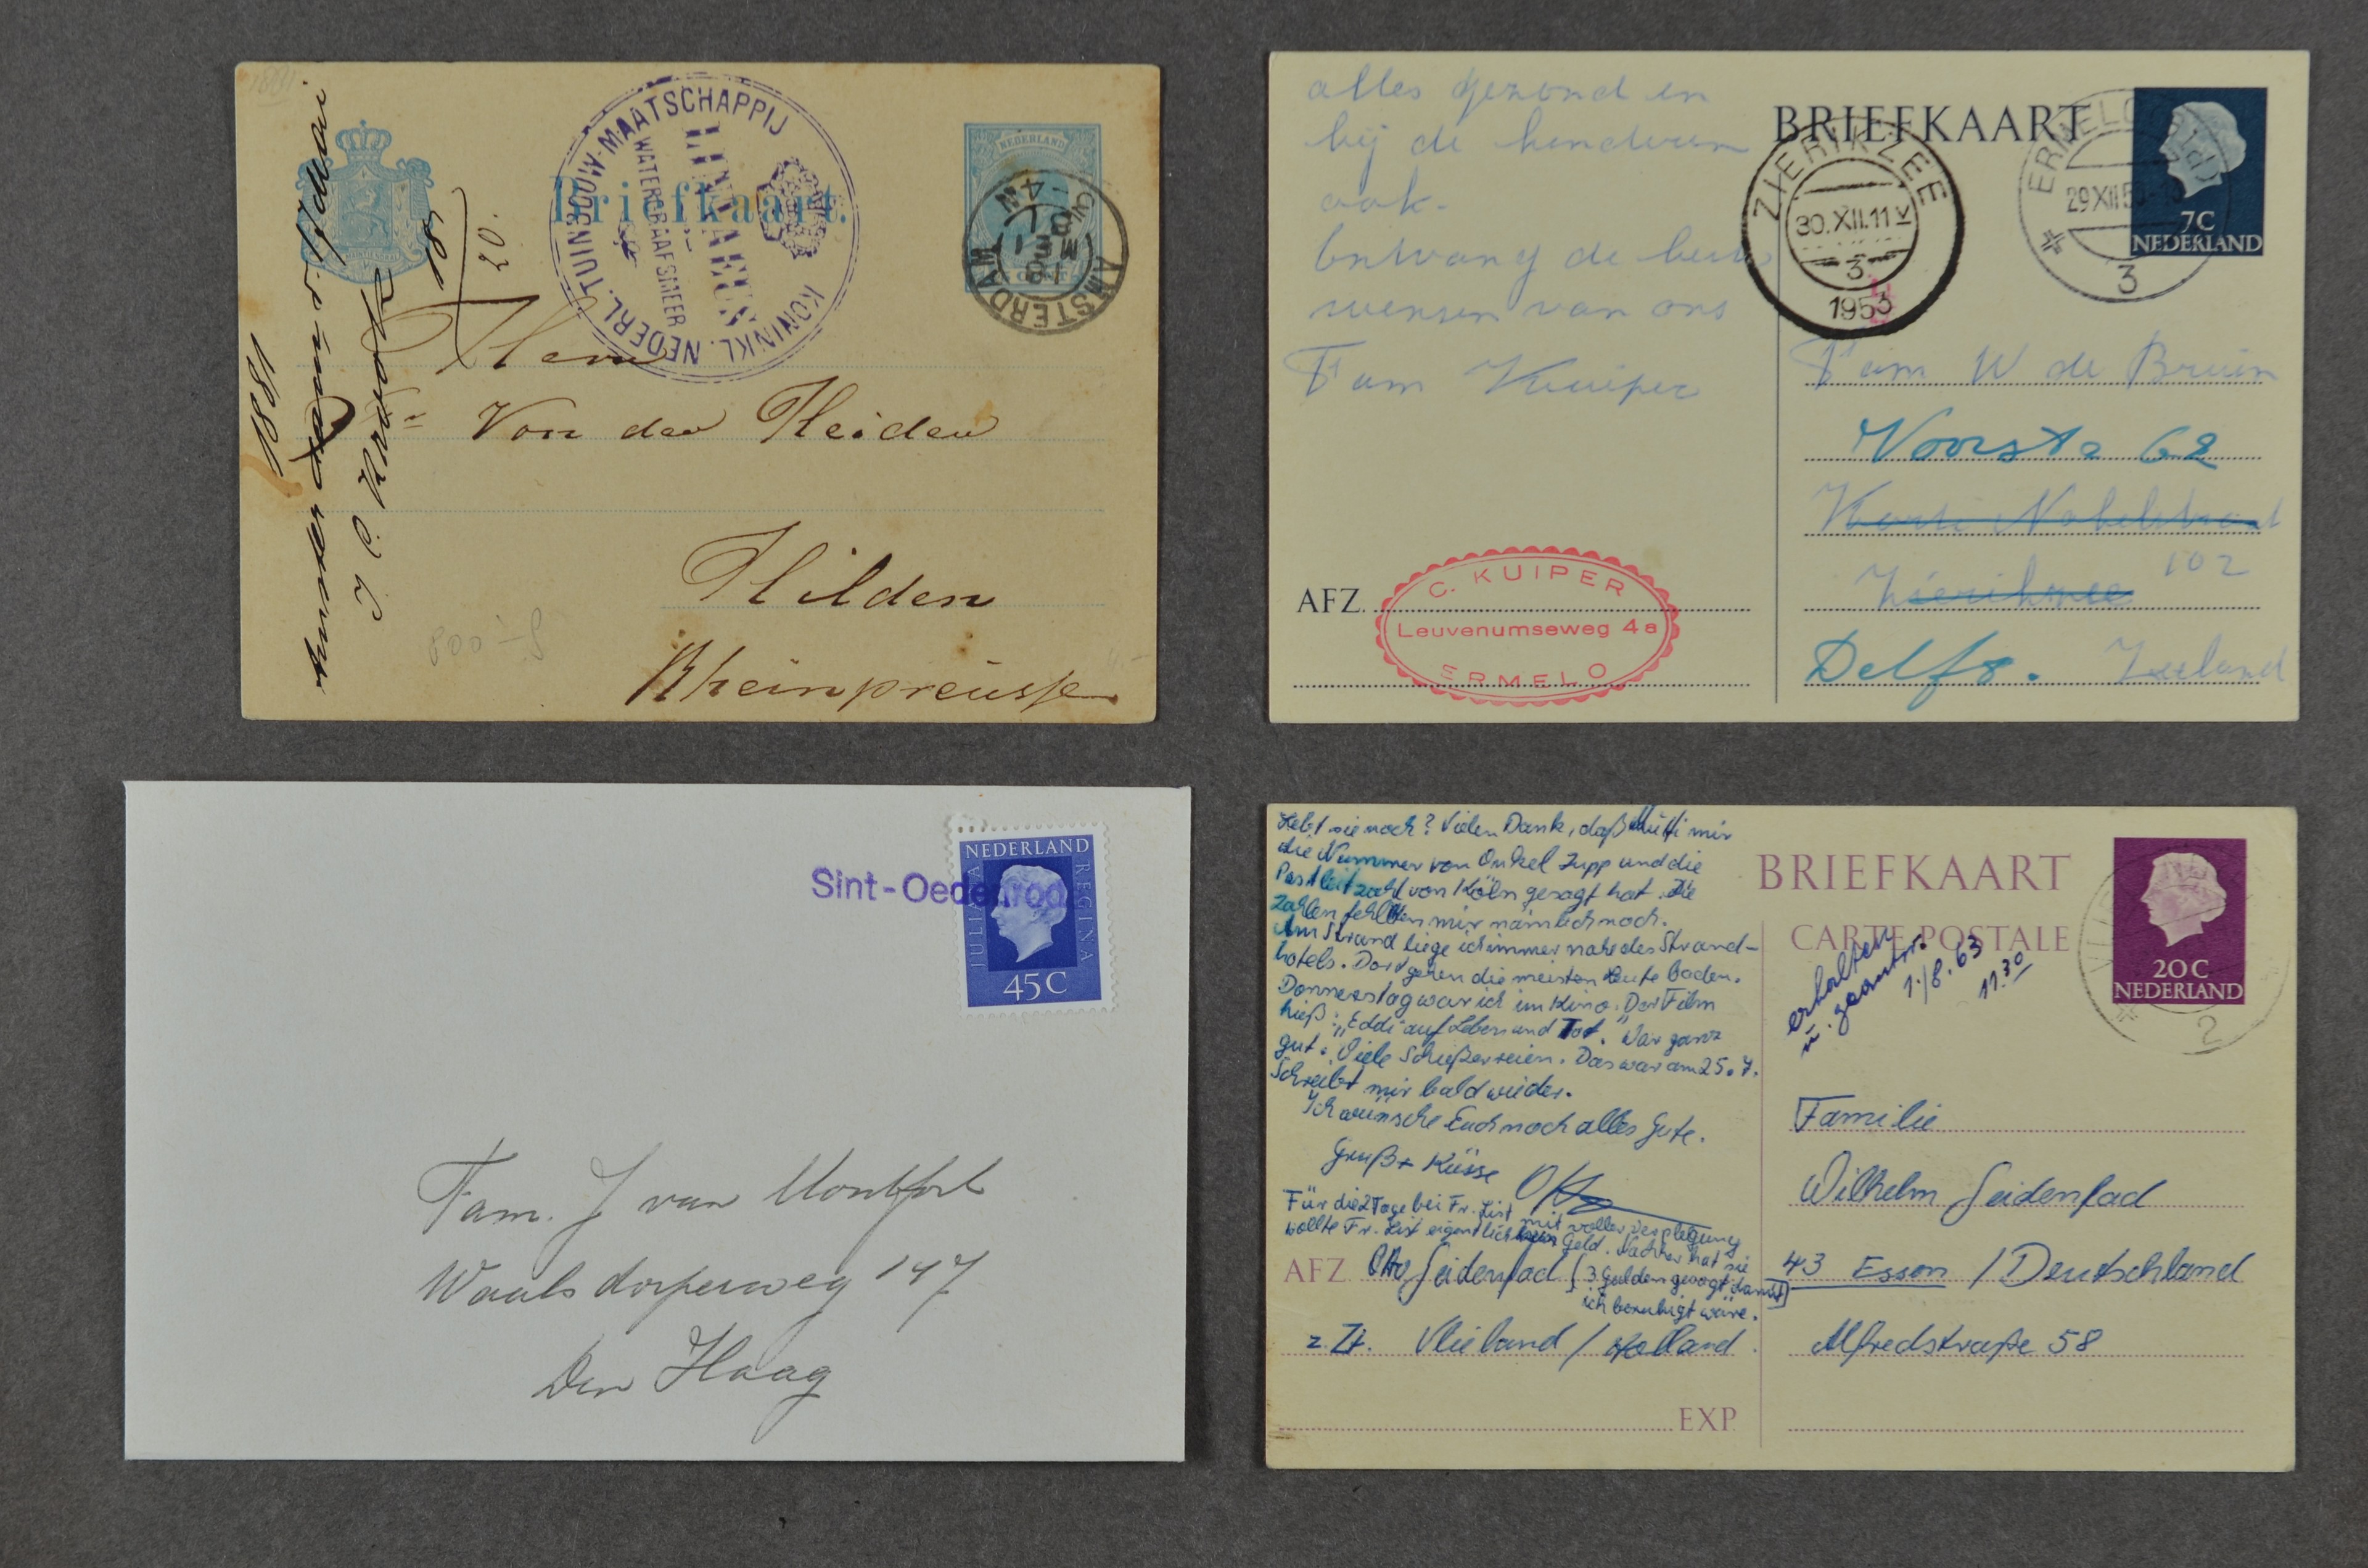 Briefkaart.
KONINKL. NEDERL. TUINBOUW-MAATSCHAPPIJ
LINNAEUS
WATERGRAAFSMEER
NEDERLAND
AMSTERDAM
1881
18/20.
Amsterdam
J C Krook
Herrn
Von der Heiden
Hilden
Rheinpreusse
alles gezond en
bij de kinderen
ook.
Ontvang de beste
wensen van ons
Fam Kuiper
AFZ.
C. KUIPER
Leuvenumseweg 4a
ERMELO
BRIEFKAART
ZIERIKZEE
30.XII.11 V
3
1953
ERMELO (Gld)
29 XII 53
3
7C
NEDERLAND
Fam W de Bruin
Voorstr 62
Korte Nobelstraat
102
Zierikzee
Delft. Zeeland
Sint-Oedenrode
NEDERLAND
JULIANA
REGINA
45C
Fam. J van Montfort
Waalsdorperweg 147
Den Haag
Lebt sie noch? Vielen Dank, daß Mutti mir
die Nummer von Onkel Jupp und die
Postleitzahl von Köln gesagt hat. Die
Zahlen fehlten mir nämlich noch.
Am Strand liege ich immer nahe des Strand-
hotels. Dort gehen die meisten Leute baden.
Donnerstag war ich im Kino. Der Film
hieß: "Eddi auf Leben und Tot." War ganz
gut. Viele Schießereien. Das war am 25.7.
Schreibt mir bald wieder.
Ich wünsche Euch noch alles Gute.
Gruß + Küsse Otto
Für die 2 Tage bei Fr. List mit voller Verplegung
wollte Fr. List eigentlich kein Geld. Nachher hat sie
3 Gulden gesagt damit
ich beruhigt wäre.
AFZ Otto Seidenfad
z. Zt. Vlieland / Holland
EXP
BRIEFKAART
CARTE POSTALE
20C
NEDERLAND
2
erhalten
u. geantw.
1./8.63
11.30
Familie
Wilhelm Seidenfad
43 Essen / Deutschland
Alfredstraße 58